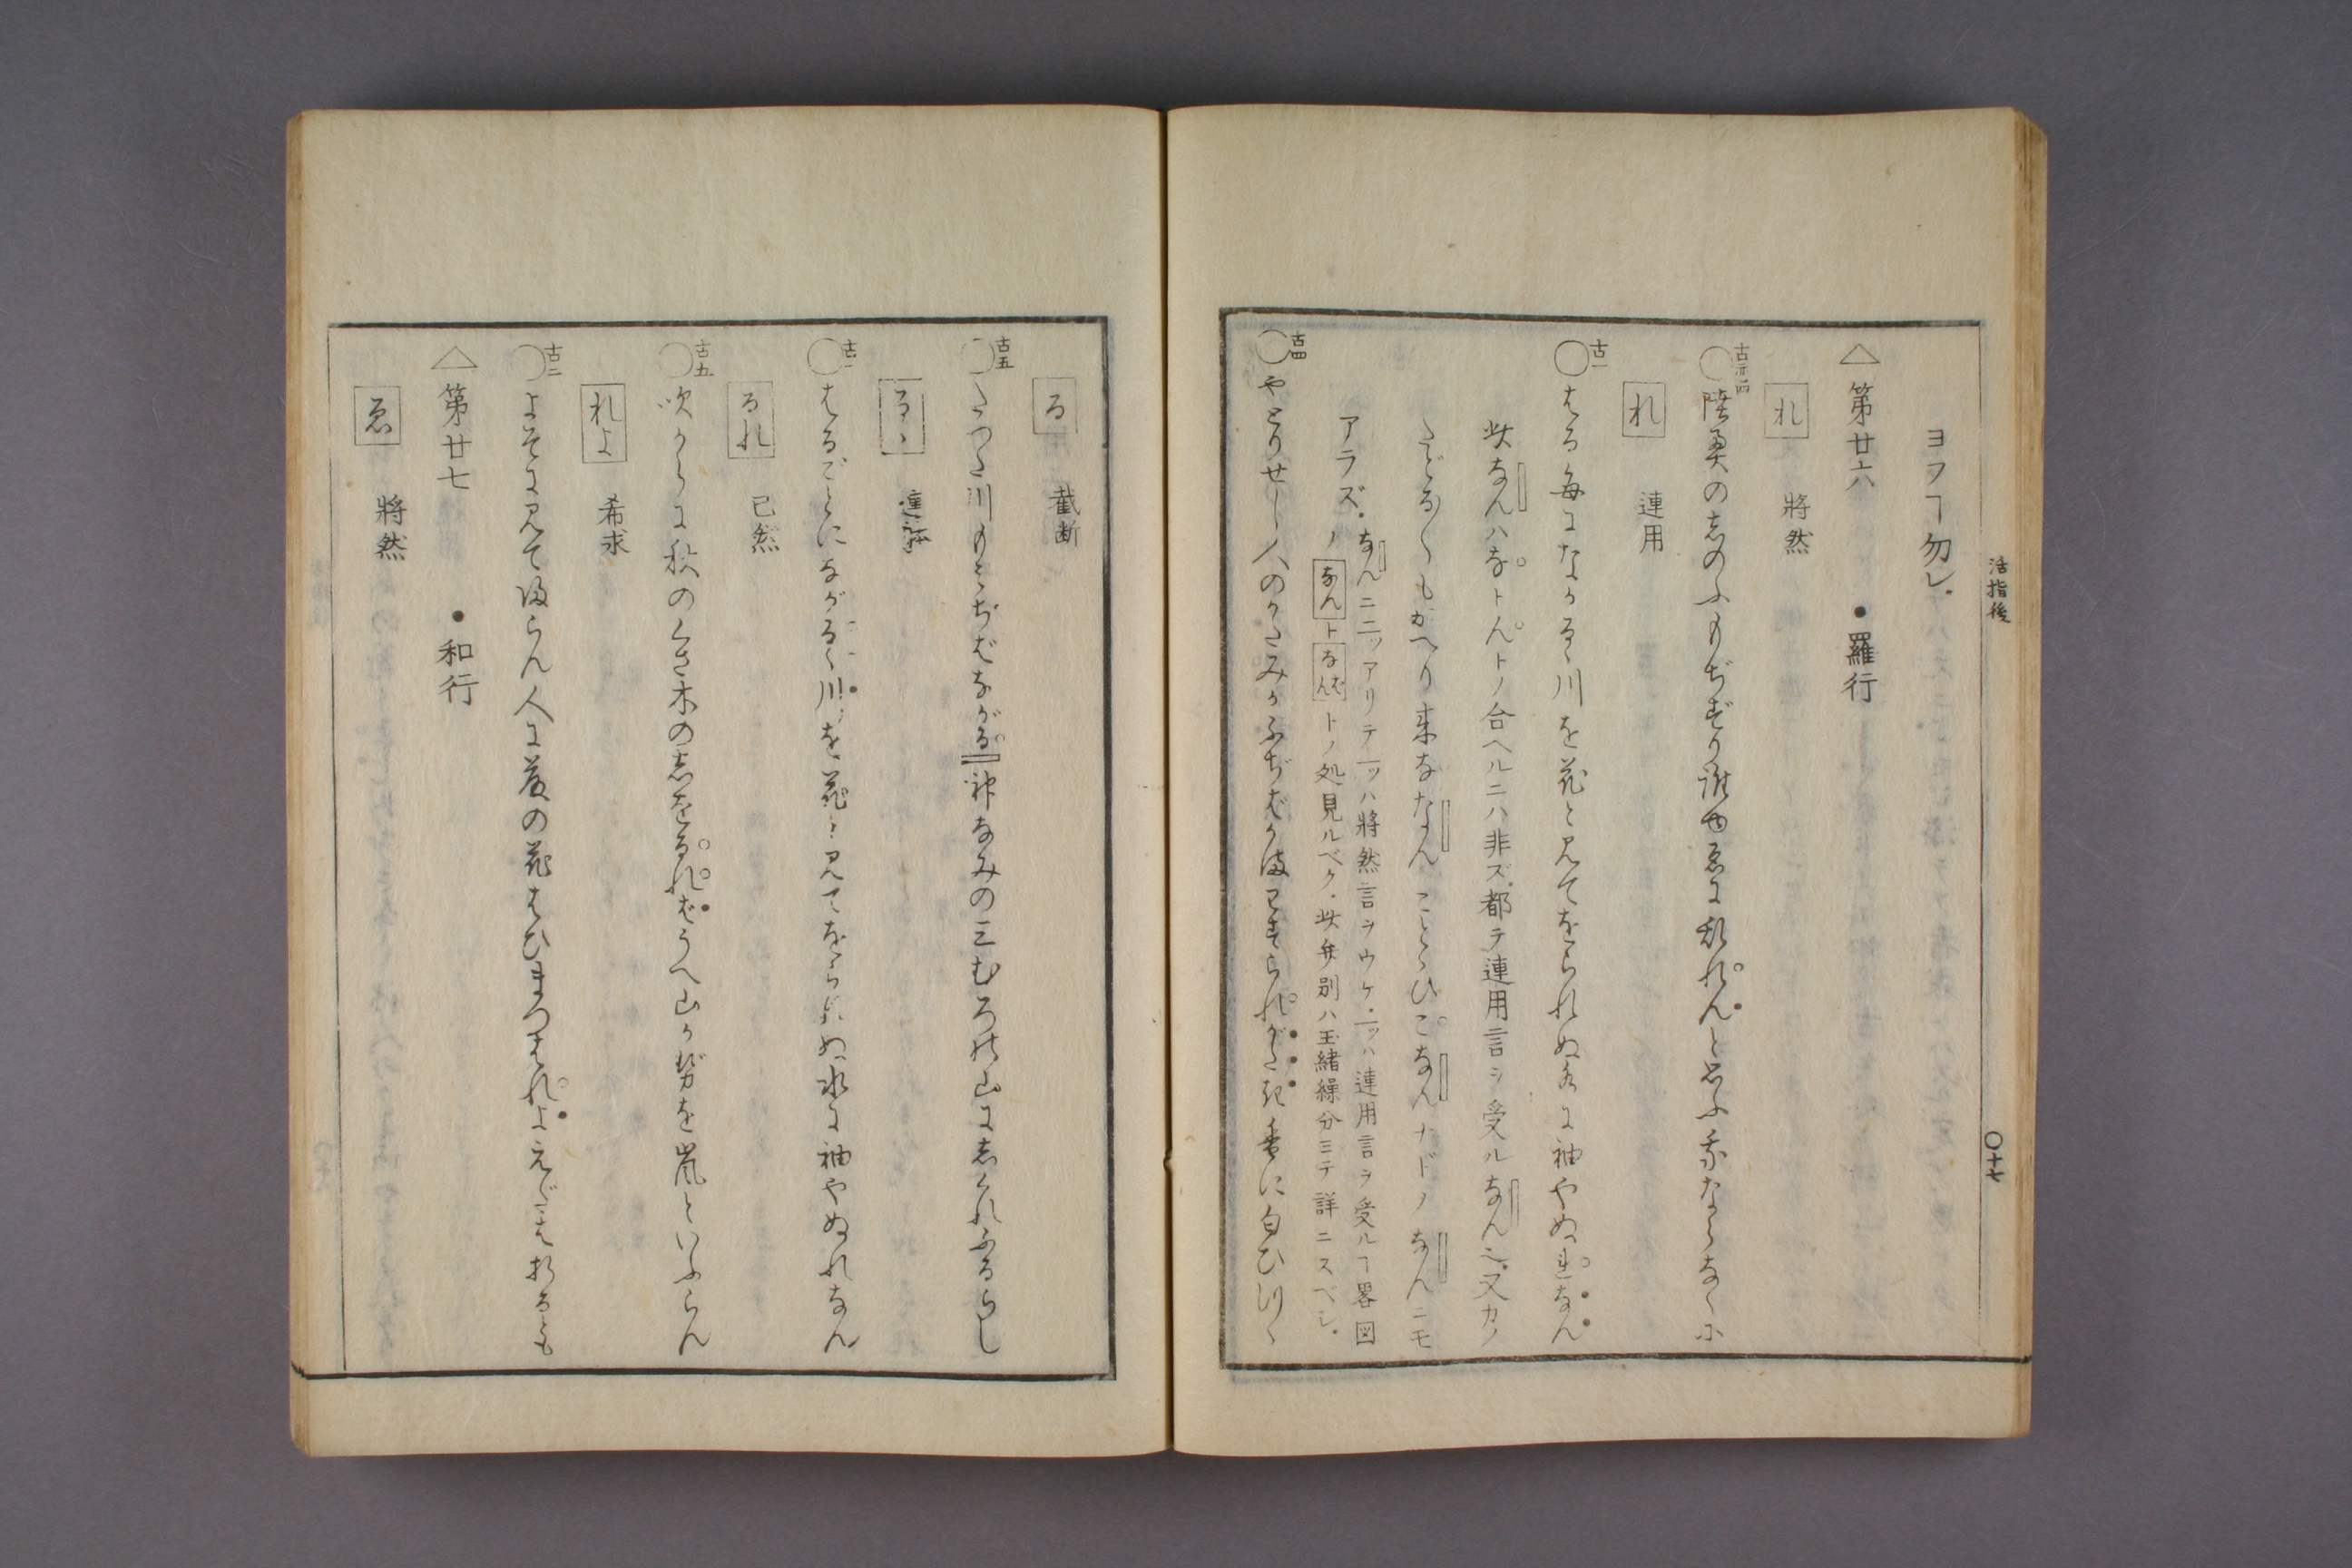 活指後
〇十七
ヨフヿ勿レ.
△第廿六 ●羅行
れ 將然
古十四
〇陸奥の志のふもぢずり誰ゆゑに乱れんと思ふ我ならなくに
れ 連用
古一
〇はる毎になかるゝ川を花と見てをられぬ水に袖やぬれなん
此なんハなトんトノ合ヘルニハ非ズ都テ連用言ヲ受ルなん也又カノ
たどる〳〵もかへり来ななん こととひこなんナドノなんニモ
アラズ.なんニ二ツアリテ一ツハ將然言ヲウケ.一ツハ連用言ヲ受ルヿ畧図
ノなんトなばなんトノ処見ルベク.此弁別ハ玉緒繰分ヨミテ詳ニスベシ.
古四
〇やどりせし人のかたみかふぢばかまわすられがたき香に匂ひつゝ
る 截断
古五
〇たつた川もみぢばながる神なみの三むろの山に志ぐれふるらし
るゝ 連躰
古一
〇はるごとにながるゝ川を花と見てをられぬ水に袖やぬれなん
るれ 已然
古五
〇吹からに秋のくさ木の志をるればうへ山かぜを嵐といふらん
れよ 希求
古二
〇よそに見て帰らん人に藤の花はひまつはれよえだは折るとも
△第廿七 ●和行
ゑ 將然